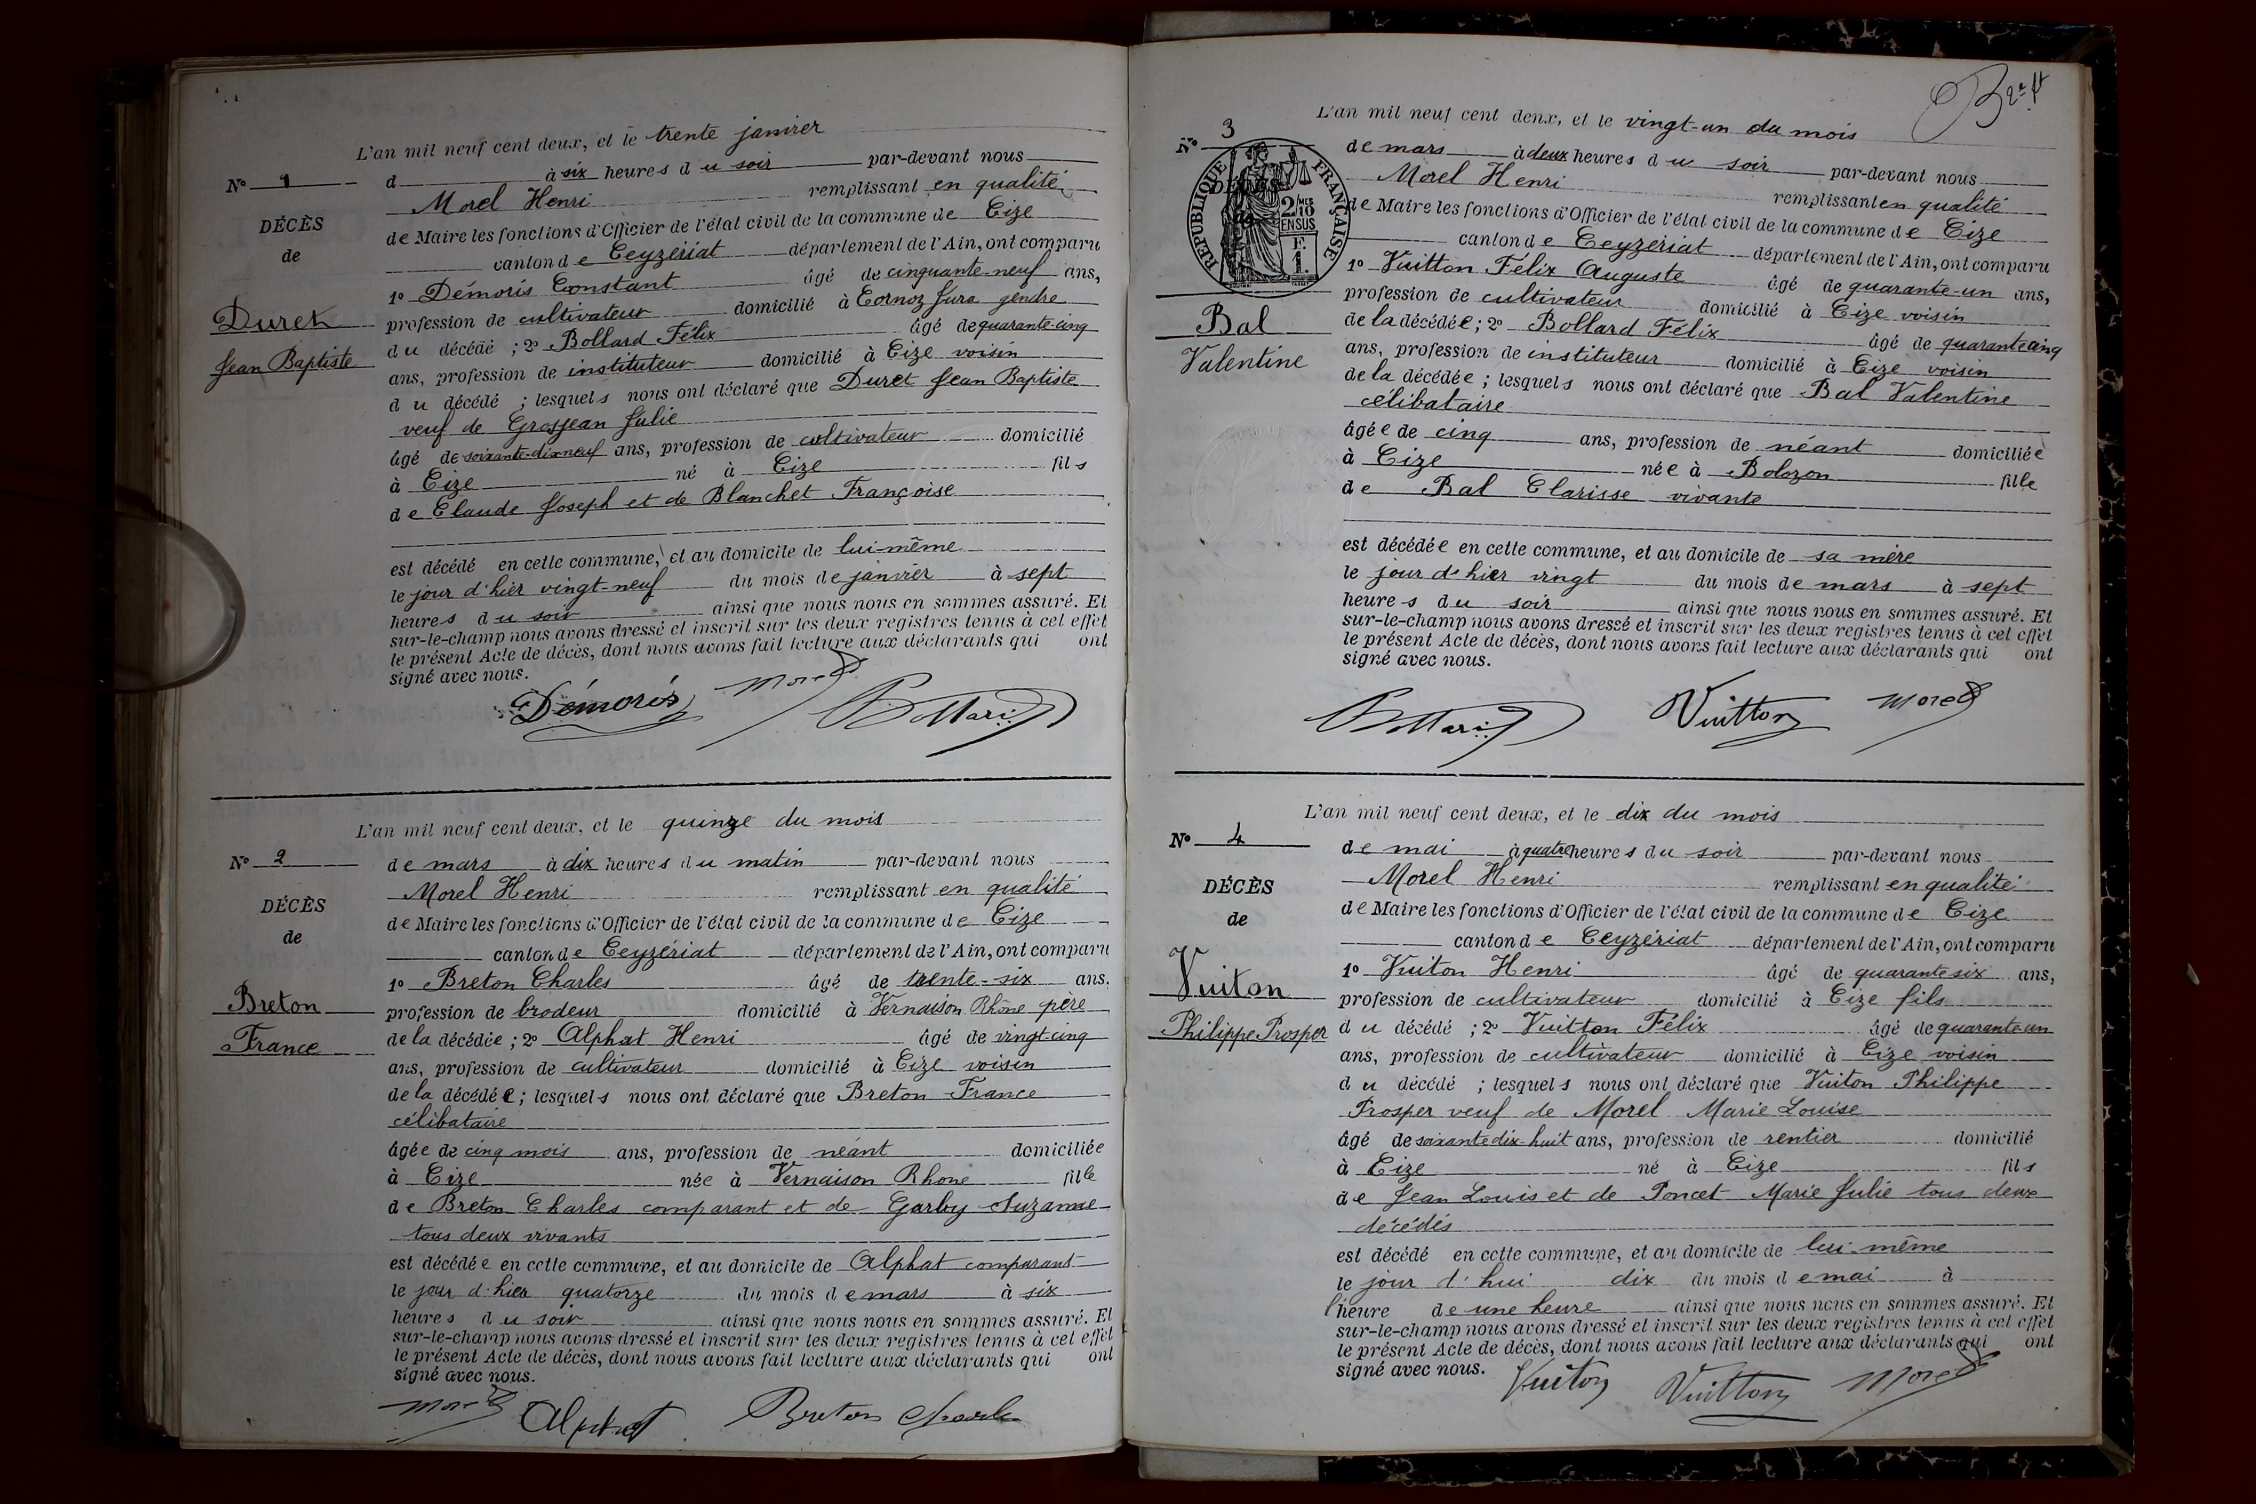 L'an mil neuf cent deux, et le trente janvier
N° 1
d à six heures du soir par-devant nous
Morel Henri remplissant en qualité
DÉCÈS
de Maire les fonctions d'Officier de l'état civil de la commune de Cize
de
canton de Ceyzériat département de l'Ain, ont comparu
1° Démoris Constant âgé de cinquante-neuf ans,
Duret
profession de cultivateur domicilié à Cornoz Jura gendre
du décédé ; 2° Bollard Félix âgé de quarante-cinq
Jean Baptiste
ans, profession de instituteur domicilié à Cize voisin
du décédé ; lesquels nous ont déclaré que Duret Jean Baptiste
veuf de Grosjean Julie
âgé de soixante-dix-neuf ans, profession de cultivateur domicilié
à Cize né à Cize fils
de Claude Joseph et de Blanchet Françoise
est décédé en cette commune, et au domicile de lui-même
le jour d'hier vingt-neuf du mois de janvier à sept
heures du soir ainsi que nous nous en sommes assuré. Et
sur-le-champ nous avons dressé et inscrit sur les deux registres tenus à cet effet
le présent Acte de décès, dont nous avons fait lecture aux déclarants qui ont
signé avec nous.
Démoris Morel Bollard
L'an mil neuf cent deux, et le quinze du mois
N° 2
de mars à dix heures du matin par-devant nous
Morel Henri remplissant en qualité
DÉCÈS
de Maire les fonctions d'Officier de l'état civil de la commune de Cize
de
canton de Ceyzériat département de l'Ain, ont comparu
1° Breton Charles âgé de trente-six ans,
Breton
profession de brodeur domicilié à Vernaison Rhône père
France
de la décédée ; 2° Alphat Henri âgé de vingt-cinq
ans, profession de cultivateur domicilié à Cize voisin
de la décédée ; lesquels nous ont déclaré que Breton France
célibataire
âgée de cinq mois ans, profession de néant domiciliée
à Cize née à Vernaison Rhone fille
de Breton Charles comparant et de Garby Suzanne
tous deux vivants
est décédée en cette commune, et au domicile de Alphat comparant
le jour d'hier quatorze du mois de mars à six
heures du soir ainsi que nous nous en sommes assuré. Et
sur-le-champ nous avons dressé et inscrit sur les deux registres tenus à cet effet
le présent Acte de décès, dont nous avons fait lecture aux déclarants qui ont
signé avec nous.
Morel Alphat Breton Charles
L'an mil neuf cent deux, et le vingt-un du mois
N° 3
de mars à deux heures du soir par-devant nous
Morel Henri remplissant en qualité
DÉCÈS
de
RÉPUBLIQUE FRANÇAISE
2/10 MES
EN SUS
F.
1.
de Maire les fonctions d'Officier de l'état civil de la commune de Cize
canton de Ceyzériat département de l'Ain, ont comparu
1° Vuitton Félix Auguste âgé de quarante-un ans,
profession de cultivateur domicilié à Cize voisin
Bal
de la décédée ; 2° Bollard Félix âgé de quarante cinq
Valentine
ans, profession de instituteur domicilié à Cize voisin
de la décédée ; lesquels nous ont déclaré que Bal Valentine
célibataire
âgée de cinq ans, profession de néant domiciliée
à Cize née à Bolozon fille
de Bal Clarisse vivante
est décédée en cette commune, et au domicile de sa mère
le jour d'hier vingt du mois de mars à sept
heures du soir ainsi que nous nous en sommes assuré. Et
sur-le-champ nous avons dressé et inscrit sur les deux registres tenus à cet effet
le présent Acte de décès, dont nous avons fait lecture aux déclarants qui ont
signé avec nous.
Bollard Vuitton Morel
L'an mil neuf cent deux, et le dix du mois
N° 4
de mai à quatre heures du soir par-devant nous
Morel Henri remplissant en qualité
DÉCÈS
de Maire les fonctions d'Officier de l'état civil de la commune de Cize
de
canton de Ceyzériat département de l'Ain, ont comparu
1° Vuiton Henri âgé de quarante six ans,
Vuiton
profession de cultivateur domicilié à Cize fils
Philippe Prosper
du décédé ; 2° Vuitton Félix âgé de quarante un
ans, profession de cultivateur domicilié à Cize voisin
du décédé ; lesquels nous ont déclaré que Vuiton Philippe
Prosper veuf de Morel Marie Louise
âgé de soixante dix-huit ans, profession de rentier domicilié
à Cize né à Cize fils
de Jean Louis et de Poncet Marie Julie tous deux
décédés
est décédé en cette commune, et au domicile de lui-même
le jour d'hui dix du mois de mai à
l'heure de une heure ainsi que nous nous en sommes assuré. Et
sur-le-champ nous avons dressé et inscrit sur les deux registres tenus à cet effet
le présent Acte de décès, dont nous avons fait lecture aux déclarants qui ont
signé avec nous.
Vuiton Vuitton Morel